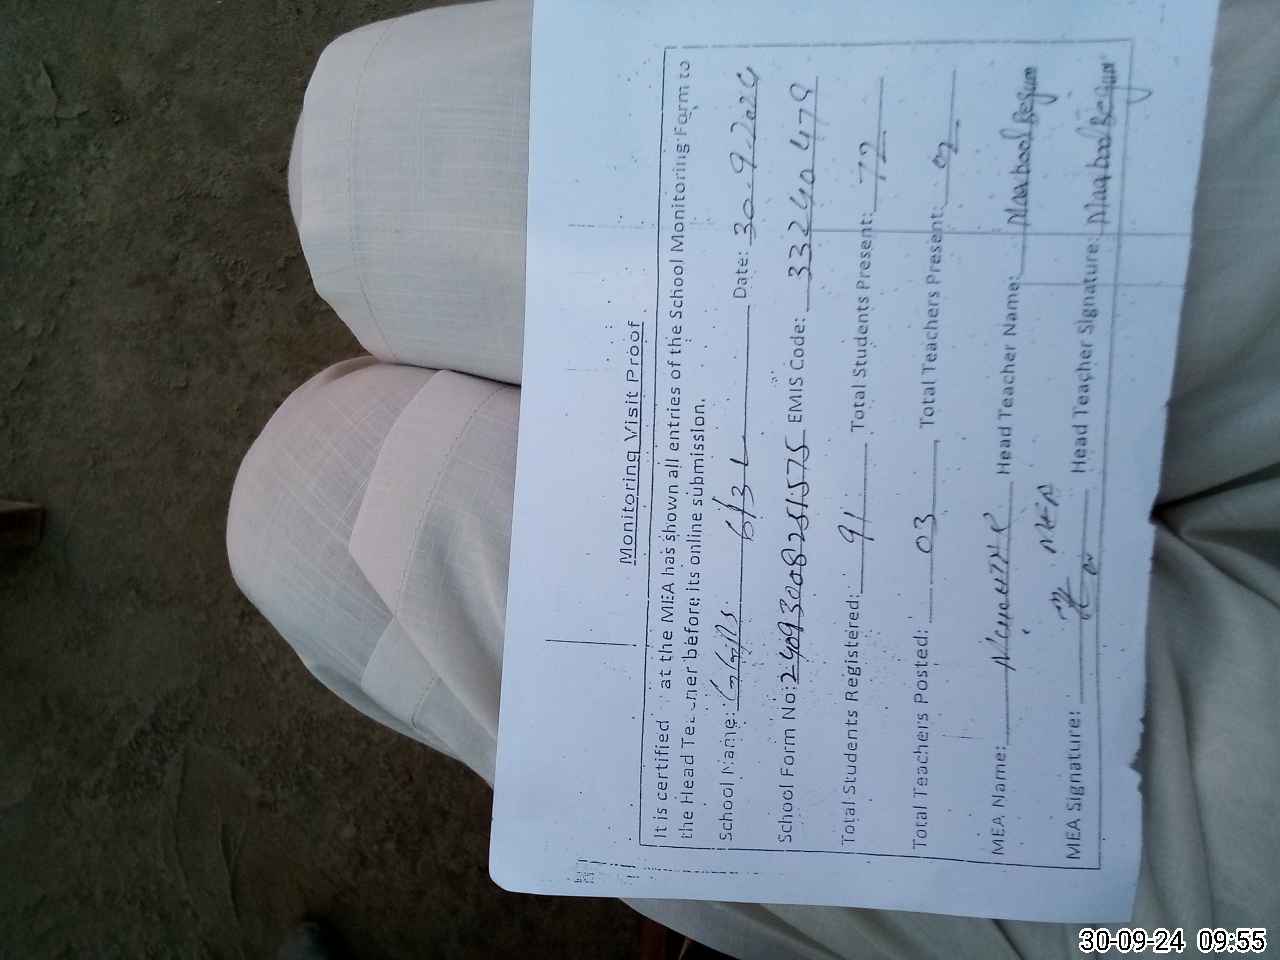 Monitoring Visit Proof
It is certified at the MEA has shown all entries of the School Monitoring Form to
the Head Te ner before its online submission.
School Name: 6/3-L Date: 30-9-2024
School Form No: 24093008251575 EMIS Code: 33240479
Total Students Registered: 91 Total Students Present: 72
Total Teachers Posted: 03 Total Teachers Present: 02
MEA Name: Head Teacher Name: Maqbool Begum
MEA
MEA Signature: Head Teacher Signature: Maqbool Begum
30-09-24 09:55